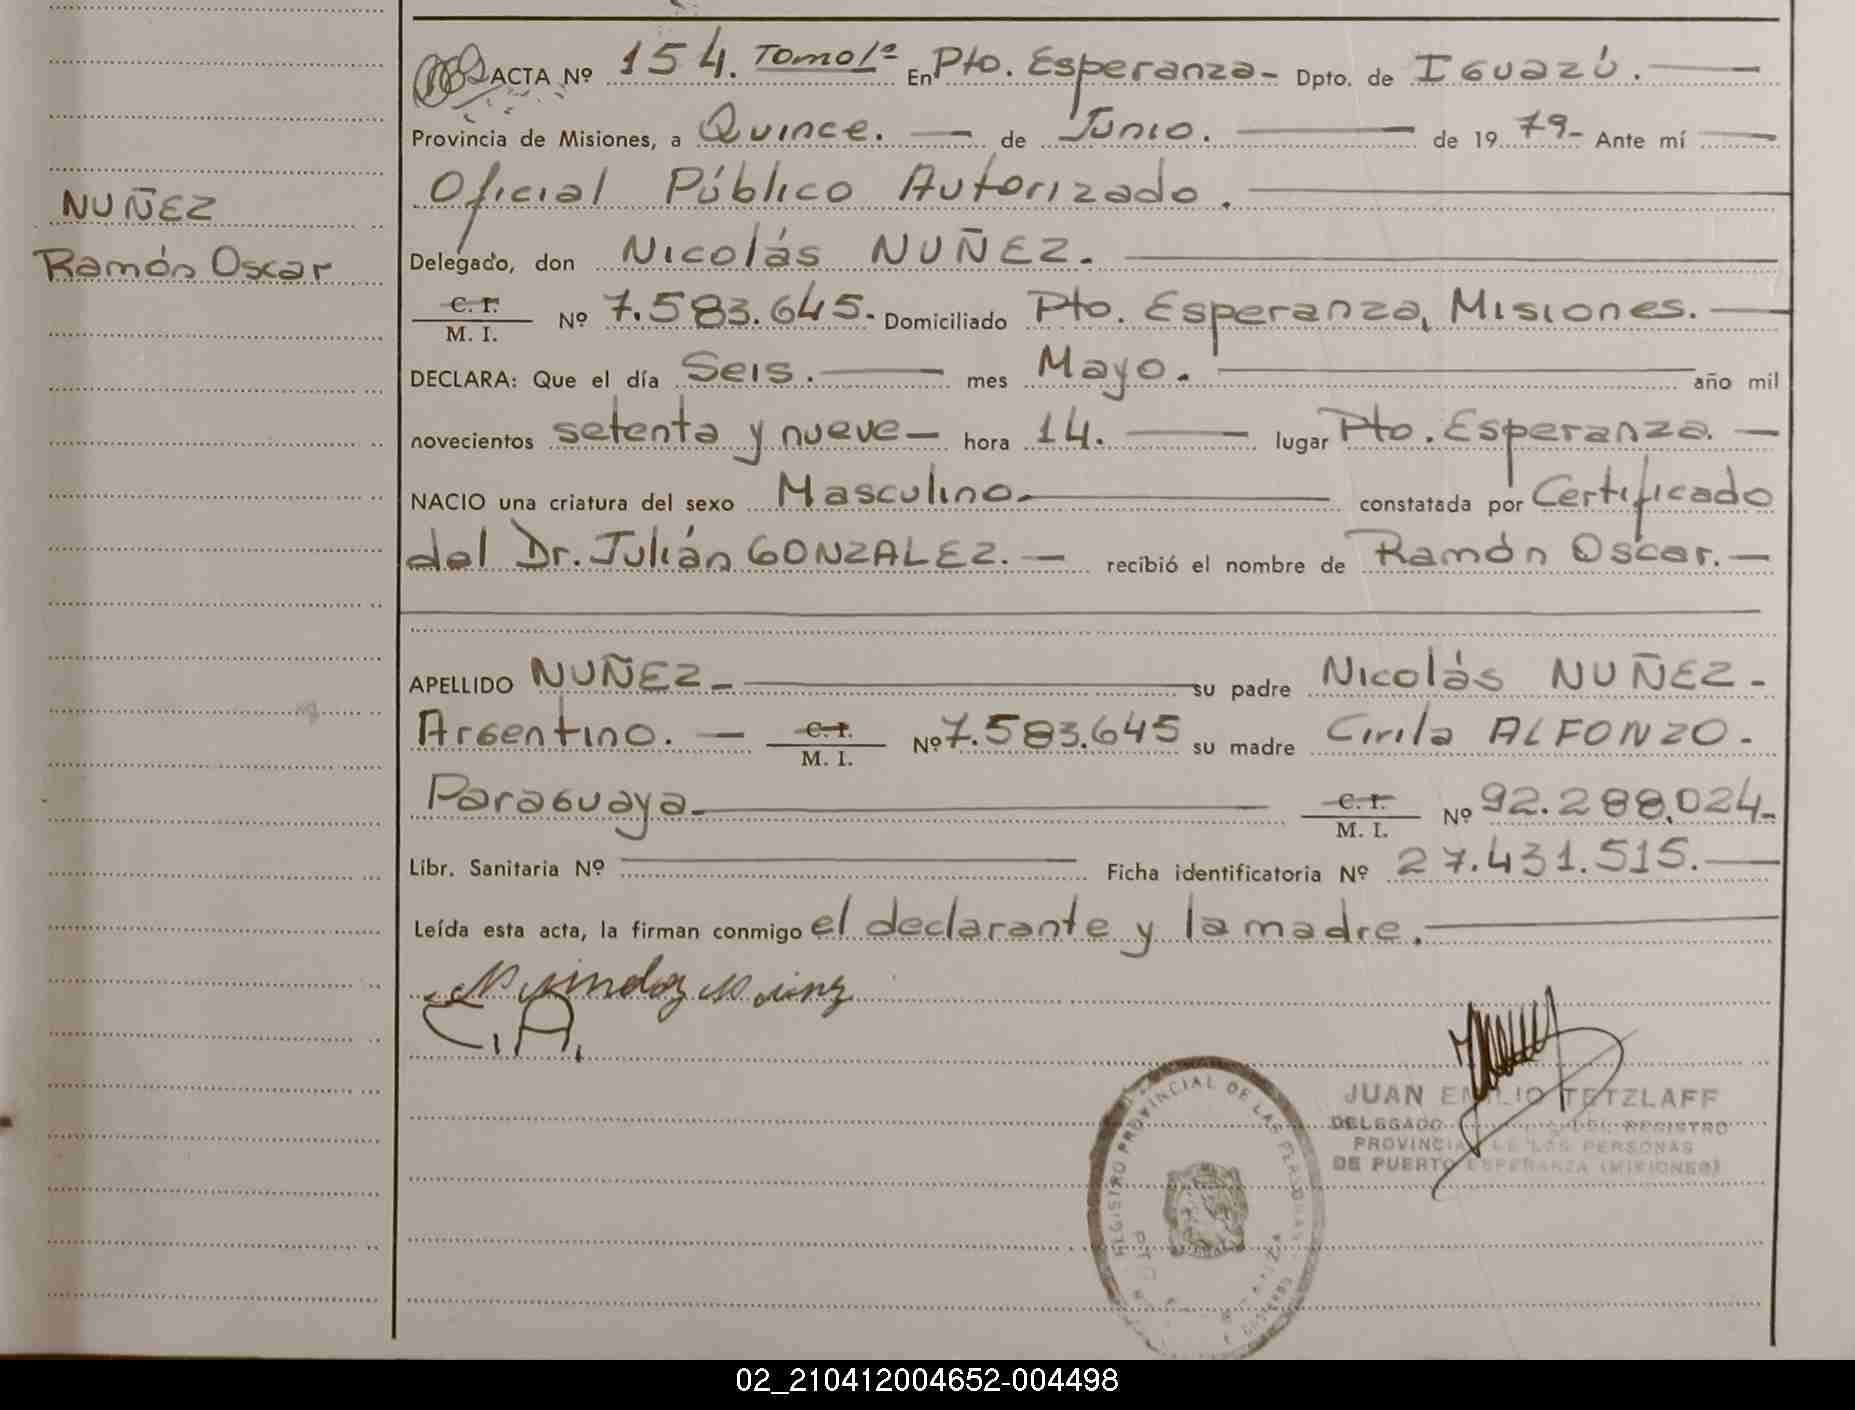 NUÑEZ
Ramón Oscar
ACTA Nº 154. Tomo 1º En Pto. Esperanza- Dpto. de Iguazú.
Provincia de Misiones, a Quince. de Junio. de 1979- Ante mí
Oficial Público Autorizado.
Delegado, don Nicolás NUÑEZ.
C. I.
M. I. Nº 7.583.645. Domiciliado Pto. Esperanza, Misiones.
DECLARA: Que el día Seis. mes Mayo. año mil
novecientos setenta y nueve hora 14. lugar Pto. Esperanza.
NACIO una criatura del sexo Masculino. constatada por Certificado
del Dr. Julián GONZALEZ. recibió el nombre de Ramón Oscar.
APELLIDO NUÑEZ su padre Nicolás NUÑEZ-
Argentino. C. I.
M. I. Nº 7.583.645 su madre Cirila ALFONZO.
Paraguaya C. I.
M. I. Nº 92.288.024-
Libr. Sanitaria Nº Ficha identificatoria Nº 27.431.515.
Leída esta acta, la firman conmigo el declarante y la madre.
C.A.
JUAN EMILIO TETZLAFF
DELEGADO DEL REGISTRO
PROVINCIAL DE LAS PERSONAS
DE PUERTO ESPERANZA (MISIONES)
REGISTRO PROVINCIAL DE LAS PERSONAS
02_210412004652-004498